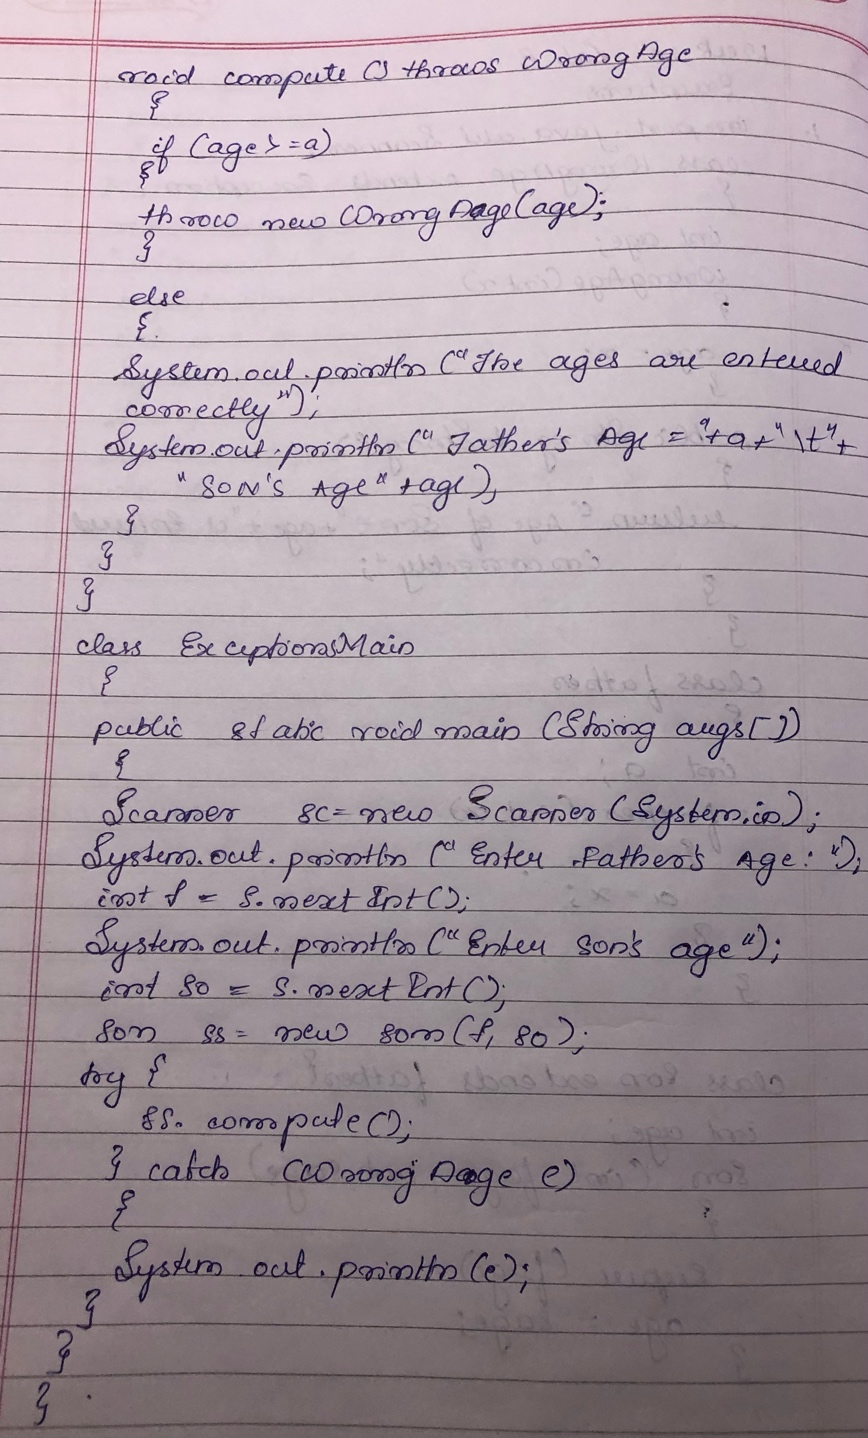 void compute () throws WrongAge
{
if (age >= a)
{
throw new WrongAage(age);
}
else
{
System.out.println ("The ages are entered
correctly");
System.out.println (" Father's Age = "+a+" \t"+
" SON's Age" +age);
}
}
}
class ExceptionsMain
{
public static void main (String args[])
{
Scanner sc= new Scanner (System.in);
System.out.println (" Enter Father's Age: ");
int f = s.nextInt();
System.out.println (" Enter son's age");
int so = s.nextInt();
son ss = new son(f, so);
try {
ss. compute();
} catch (WrongAage e)
{
System out.println (e);
}
}
}